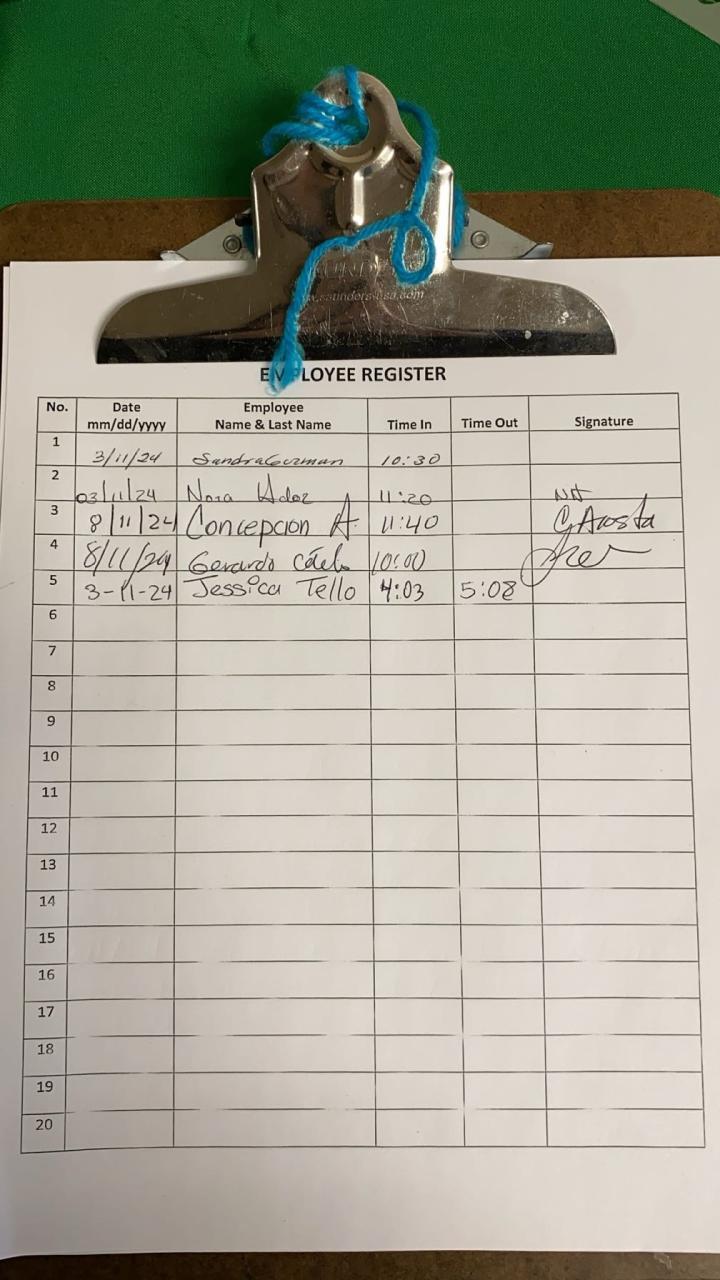 www.saunders-usa.com
EMPLOYEE REGISTER
No. Date mm/dd/yyyy Employee Name & Last Name Time In Time Out Signature
1 3/11/24 Sandra Guzman 10:30
2 03/11/24 Nora 11:20 NA
3 8/11/24 Concepcion A. 11:40 C Acosta
4 8/11/24 Gerardo 10:00
5 3-11-24 Jessica Tello 4:03 5:08
6
7
8
9
10
11
12
13
14
15
16
17
18
19
20